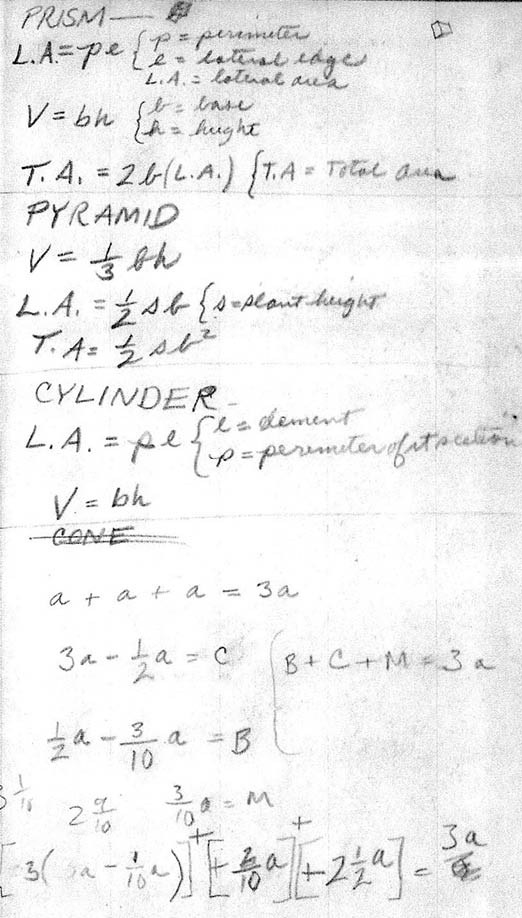 PRISM —
L.A. = pe { p = perimeter
e = lateral edge
L.A. = lateral area
V = bh { b = base
h = height
T.A. = 2b(L.A.) { T.A = Total area
PYRAMID
V = 1/3 bh
L.A. = 1/2 sb { s = slant height
T.A = 1/2 sb²
CYLINDER
L.A. = pe { e = element
p = perimeter of rt section
V = bh
CONE
a + a + a = 3a
3a - 1/2 a = C
B + C + M = 3a
1/2 a - 3/10 a = B
3 1/10 2 9/10 3/10 a = M
[-3( a - 1/10 a)] + [+ 3/10 a] + [+ 2 1/2 a] = 3a